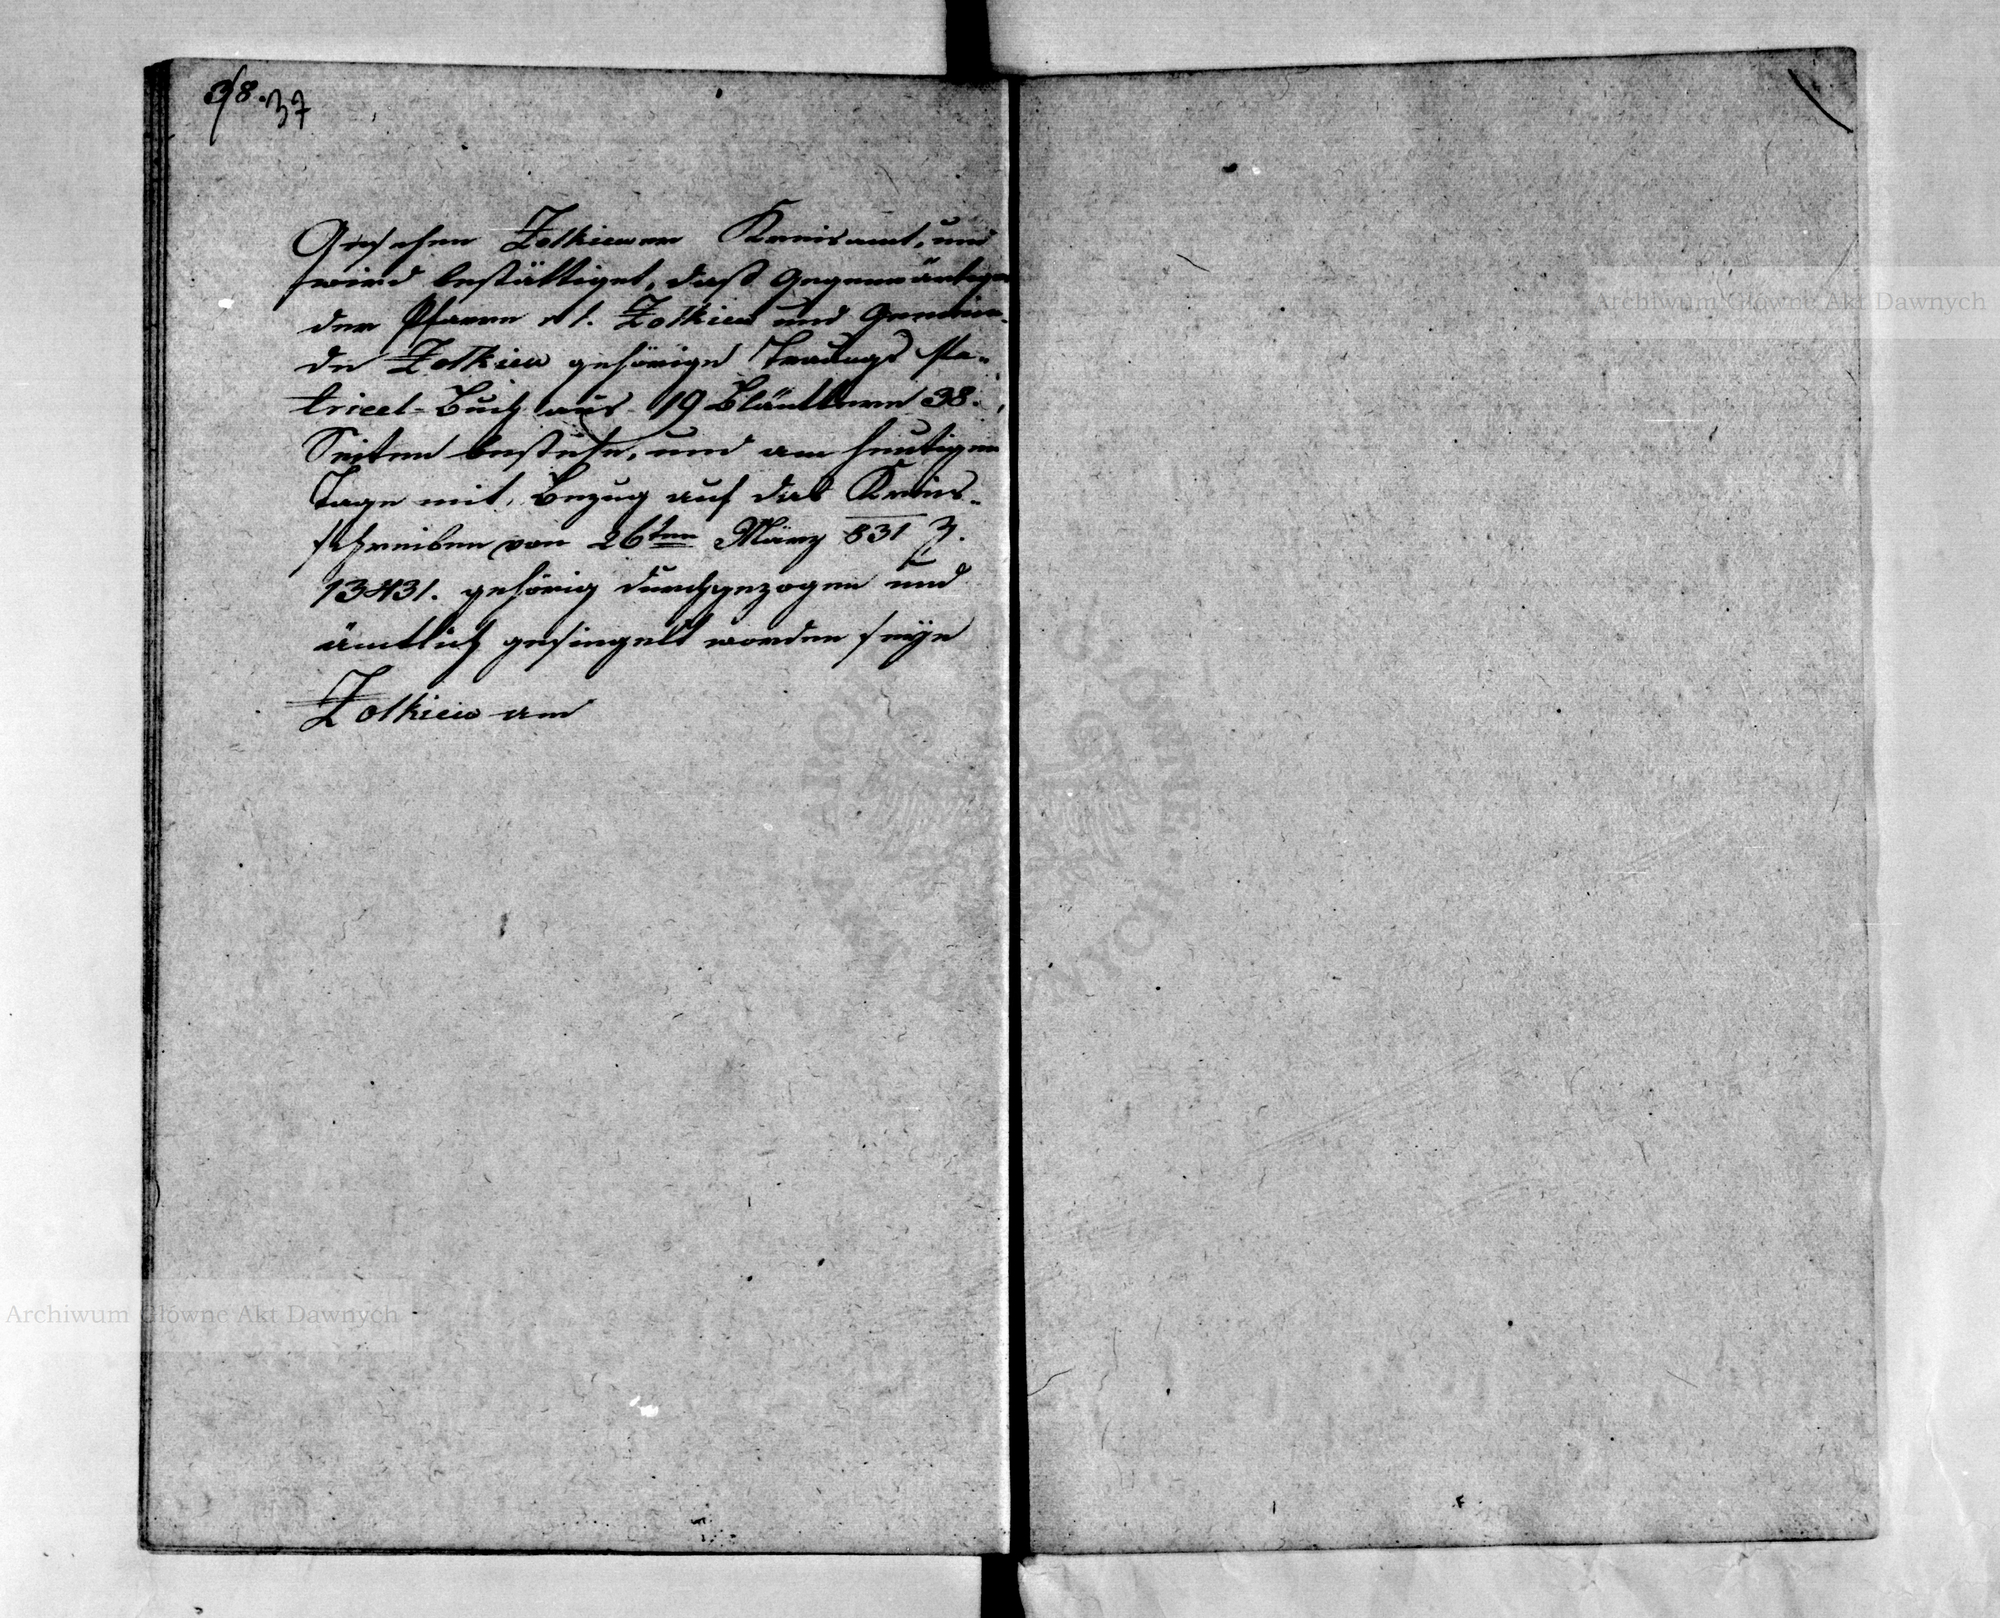 38. 37
Gesehen Zolkiewer Kreisamt, und
wird bestättiget, daß gegenwärtiges
der Pfarre r l. Zolkiew und Gemein-
de Zolkiew gehörige Trauugs Ma-
tricel-Buch aus 19 Blättern 38.
Seiten bestehe, und am heutigen
Tage mit Bezug auf das Kreis-
schreiben von 26ten März 831 Z.
13431. gehörig durchgezogen und
ämtlich gesiegelt worden seÿe
Zolkiew am
Archiwum Główne Akt Dawnych
Archiwum Główne Akt Dawnych
ARCHIWUM GŁÓWNE AKT DAWNYCH